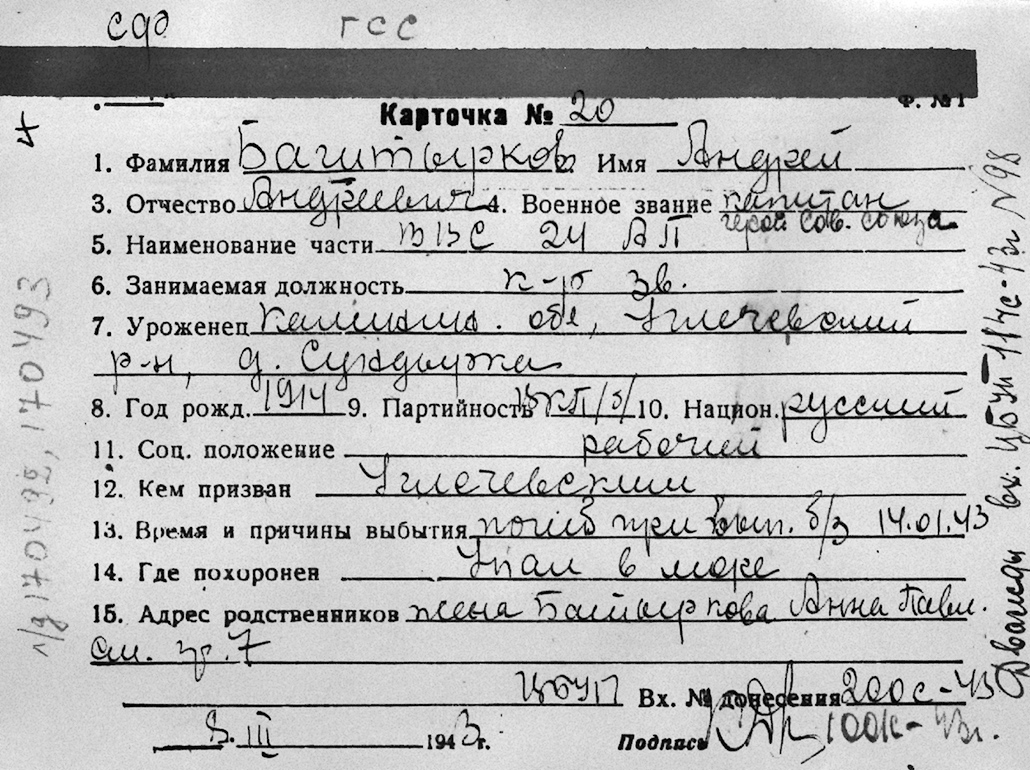 сдд ГСС
Ф. №1
Карточка № 20
1. Фамилия Багитырков Имя Андрей
3. Отчество Андреевич 4. Военное звание капитан
герой Сов. Союза
5. Наименование части ВВС 24 АП
6. Занимаемая должность к-р зв.
7. Уроженец Калининс. обл, Угличевский
р-н, д.
8. Год рожд. 1914 9. Партийность ВКП/б/ 10. Национ. русский
11. Соц. положение рабочий
12. Кем призван Угличевским
13. Время и причины выбытия погиб при вып. б/з 14.01.43
14. Где похоронен Упал в море
15. Адрес родственников жена Анна Павл.
См. гр. 7
ЦБУП Вх. № донесения 200с-43
8. III 1943 г. Подпись 100к-43г.
л/д 170492, 170493
Дважды вх. ЦБУП 114с-43г №98